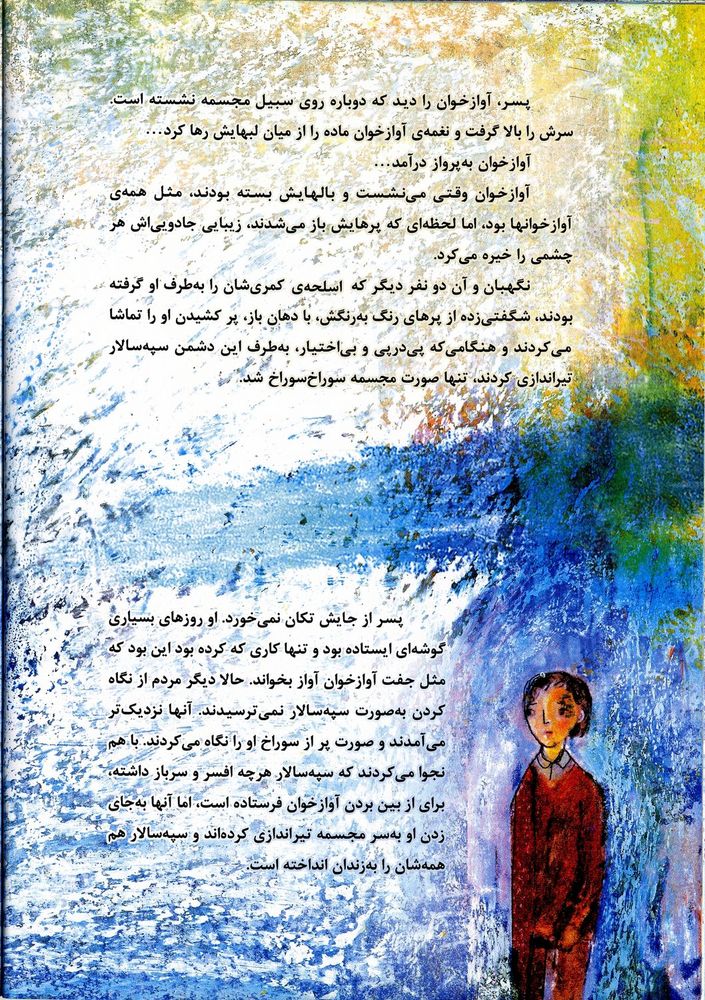 پسر، آوازخوان را دید که دوباره روی سبیل مجسمه نشسته است.
سرش را بالا گرفت و نغمه‌ی آوازخوان ماده را از میان لبهایش رها کرد...
آوازخوان به‌پرواز درآمد...
آوازخوان وقتی می‌نشست و بالهایش بسته بودند، مثل همه‌ی
آوازخوانها بود، اما لحظه‌ای که پرهایش باز می‌شدند، زیبایی جادویی‌اش هر
چشمی را خیره می‌کرد.
نگهبان و آن دو نفر دیگر که اسلحه‌ی کمری‌شان را به‌طرف او گرفته
بودند، شگفتی‌زده از پرهای رنگ به‌رنگش، با دهان باز، پر کشیدن او را تماشا
می‌کردند و هنگامی‌که پی‌درپی و بی‌اختیار، به‌طرف این دشمن سپه‌سالار
تیراندازی کردند، تنها صورت مجسمه سوراخ‌سوراخ شد.
پسر از جایش تکان نمی‌خورد. او روزهای بسیاری
گوشه‌ای ایستاده بود و تنها کاری که کرده بود این بود که
مثل جفت آوازخوان آواز بخواند. حالا دیگر مردم از نگاه
کردن به‌صورت سپه‌سالار نمی‌ترسیدند. آنها نزدیک‌تر
می‌آمدند و صورت پر از سوراخ او را نگاه می‌کردند. با هم
نجوا می‌کردند که سپه‌سالار هرچه افسر و سرباز داشته،
برای از بین بردن آوازخوان فرستاده است، اما آنها به‌جای
زدن او به‌سر مجسمه تیراندازی کرده‌اند و سپه‌سالار هم
همه‌شان را به‌زندان انداخته است.